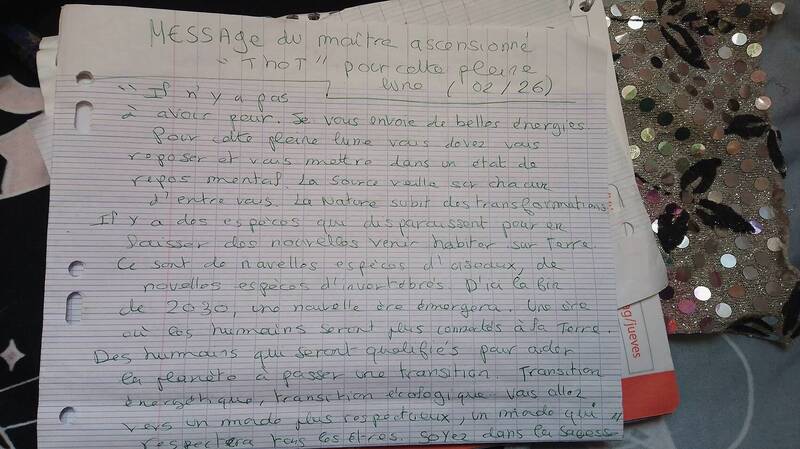 MESSAGE du maître ascensionné
"THOT" pour cette pleine
lune (02/26)
"Il n'y a pas
à avoir peur. Je vous envoie de belles énergies.
Pour cette pleine lune vous devez vous
reposer et vous mettre dans un état de
repos mental. La Source veille sur chacun
d'entre vous. La Nature subit des transformations.
Il y a des espèces qui disparaissent pour en
laisser des nouvelles venir habiter sur Terre.
Ce sont de nouvelles espèces d'oiseaux, de
nouvelles espèces d'invertébrés. D'ici la fin
de 2030, une nouvelle ère émergera. Une ère
où les humains seront plus connectés à la Terre.
Des humains qui seront qualifiés pour aider
la planète à passer une transition. Transition
énergétique, transition écologique. Vous allez
vers un monde plus respectueux, un monde qui
respectera tous les êtres. Soyez dans la sagesse"
g/jueves